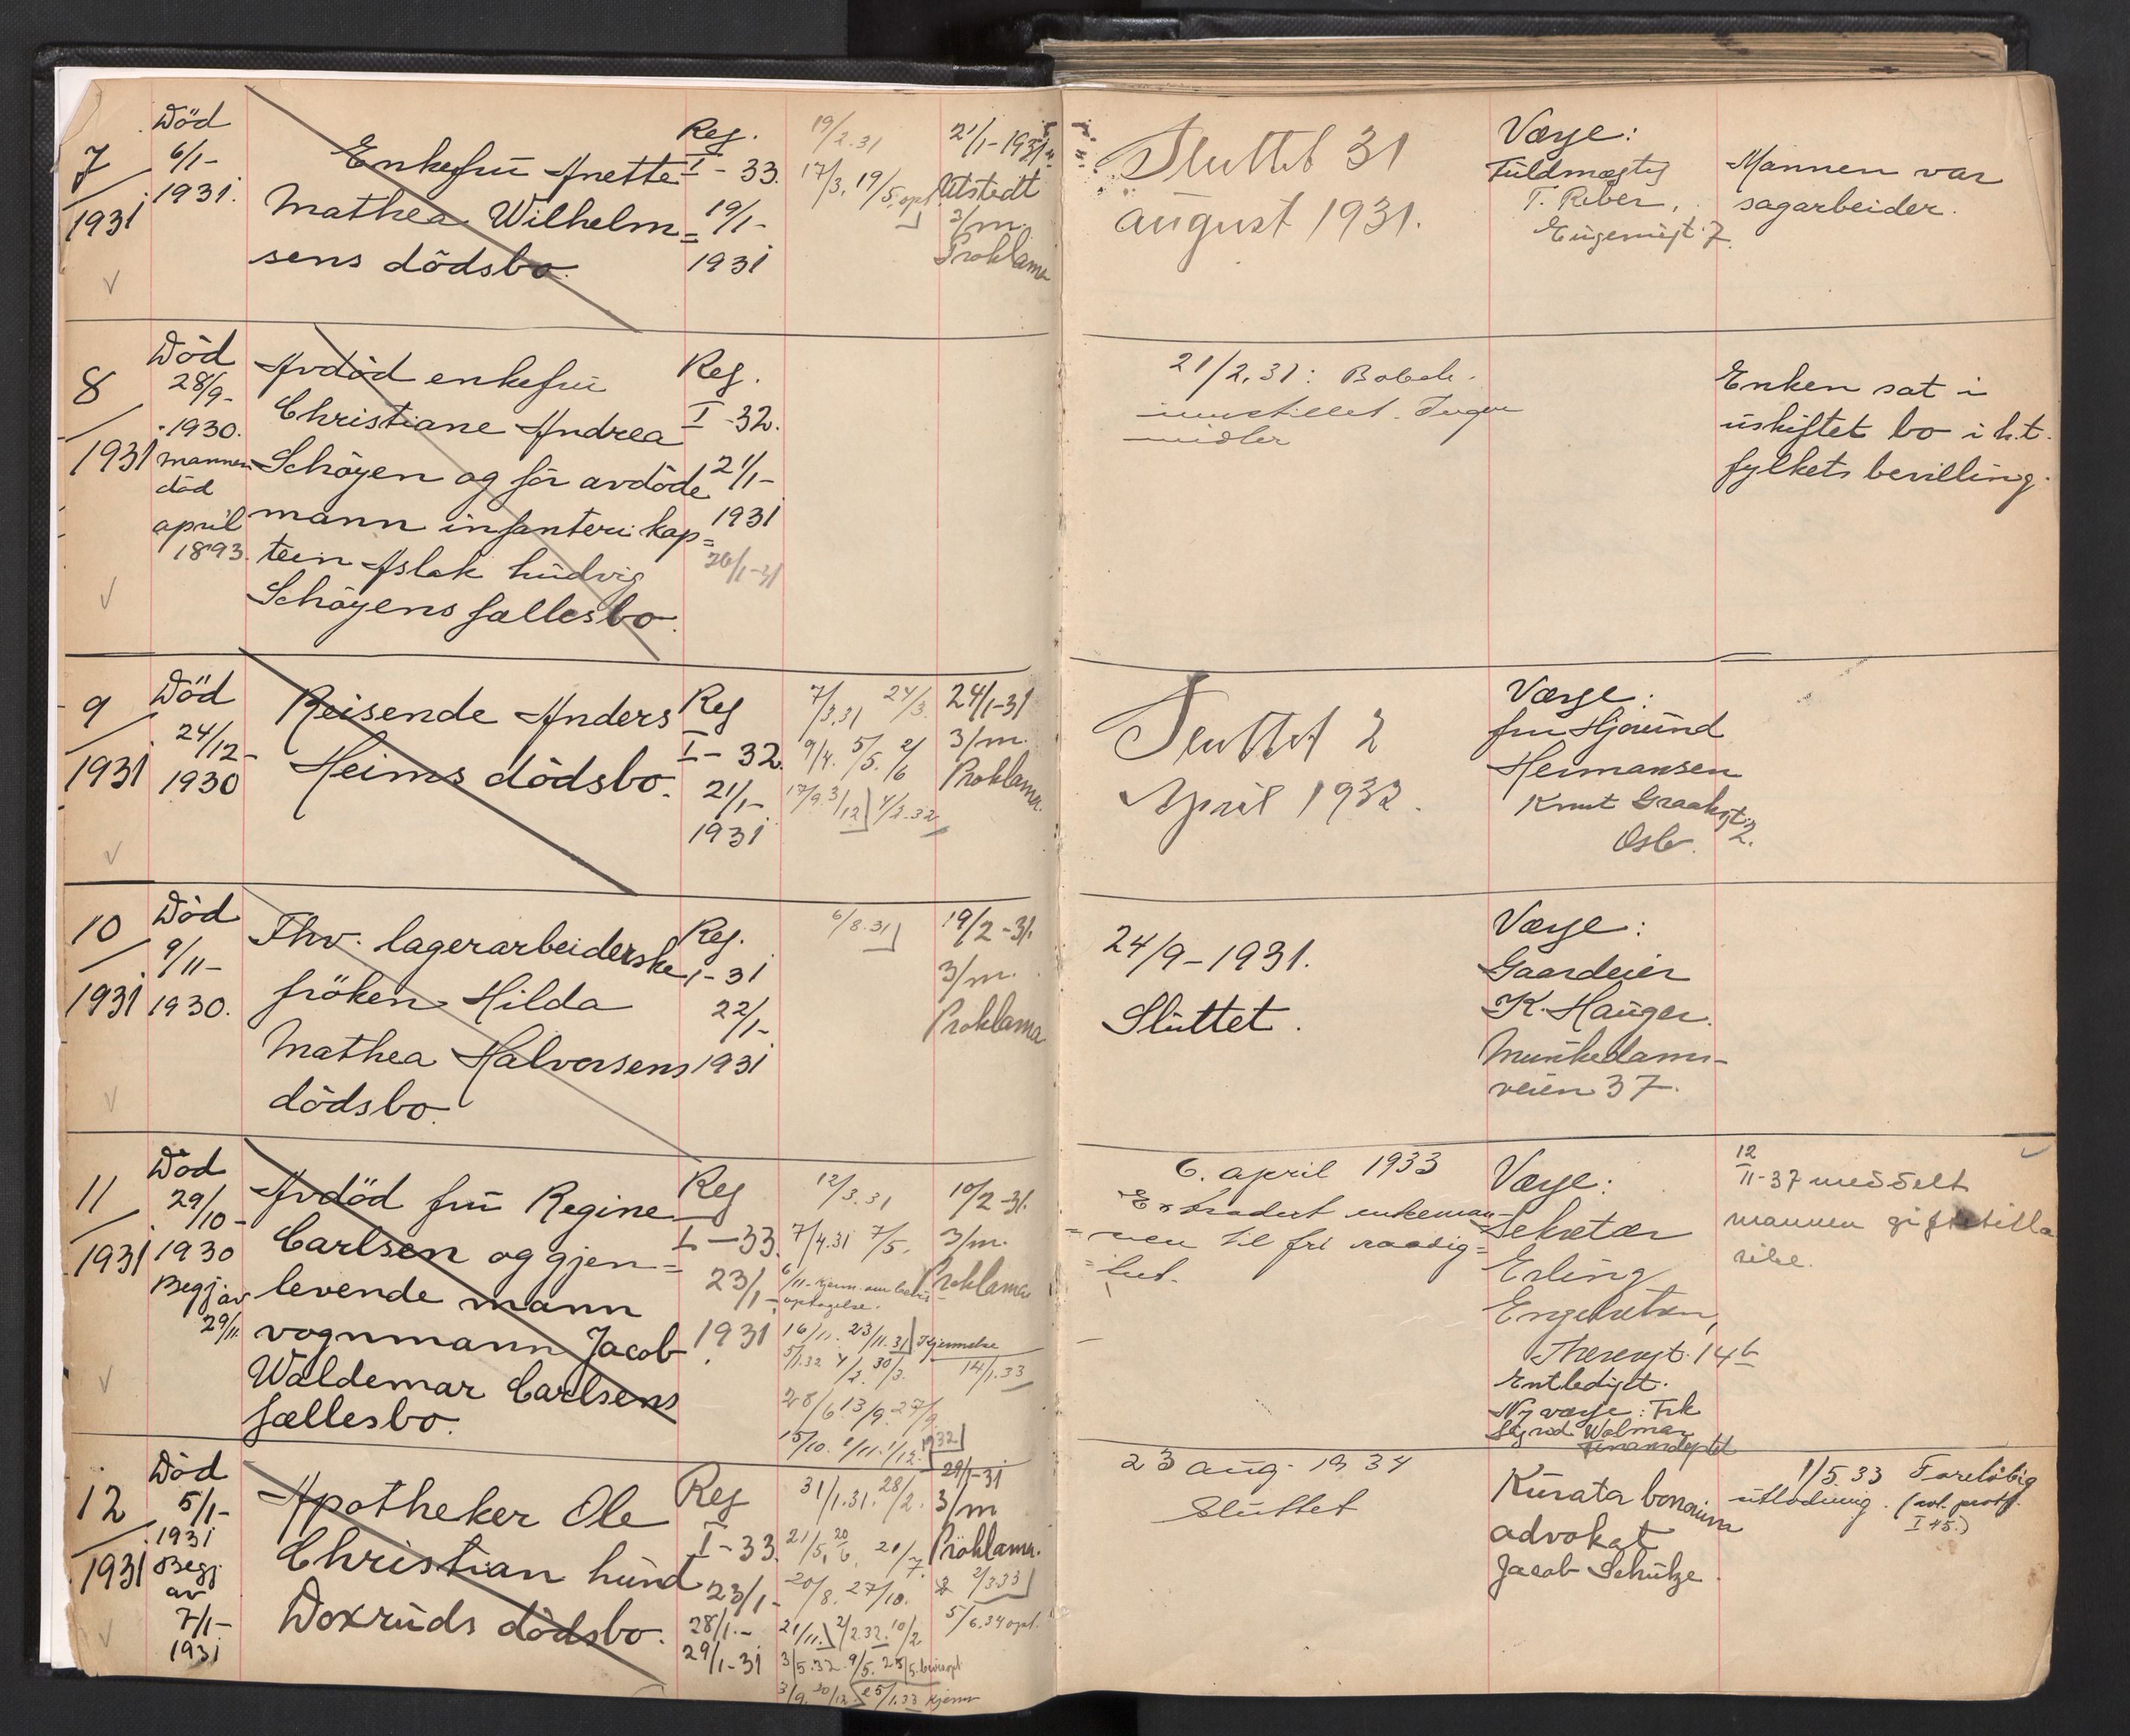 7
/
1931
Död
6/1-
1931.
Enkefrü Anette
Mathea Wilhelm=
sens dödsbo.
Reg.
I - 33.
19/1-
1931
19/2.31
17/3. 19/5. opt
21/1-1931
Utstedt
2/m.
Proklama
Sluttet 31
august 1931.
Værge:
Füldmægtig
T. Reber,
Eugeniesgt. 7.
Mannen var
sagarbeider.
8
/
1931
Död
28/9-
1930.
mannen
död
april
1893.
Avdöd enkefrü
Christiane Andrea
Schöyen og för avdöde
mann infanteri kap=
tein Aslak Lüdvig
Schöyens fællesbo.
Reg.
I - 32.
21/1-
1931
26/1-31
21/2.31: Bobeh.
innstillet. Ingen
midler
Enken sat i
üskiftet bo i h.t.
fylkets bevilling.
9
/
1931
Död
24/12-
1930
Reisende Anders
Heims dödsbo.
Reg
I - 32.
21/1-
1931
7/3.31 24/3.
9/4. 5/5. 2/6
17/9. 3/12 4/2.32
24/1-31
3/m.
Proklama.
Sluttet 2
April 1932.
Værge:
frü Hjöründ
Hermansen
Knut Graahsgt. 2.
Oslo.
10
/
1931
Död
9/11-
1930.
Fhv. lagerarbeiderske
fröken Hilda
Mathea Halvorsens
dödsbo.
Reg.
I - 31
22/1-
1931
6/8.31
19/2-31.
3/m.
Proklama
24/9-1931.
Slüttet.
Værge:
Gaardeier
K. Haüger.
Münkedams-
veien 37.
11
/
1931
Död
29/10-
1930
Begj av
29/11.
Avdöd frü Regine
Carlsen og gjen=
levende mann
vognmann Jacob
Waldemar Carlsens
fællesbo.
Reg
I - 33.
23/1-
1931.
12/3.31
7/4.31 7/5.
6/11 - Kjenn. om bevis
optagelse.
16/11. 23/11.31 Kjennelse
5/1.32 4/2. 30/3. 14/1.33
28/6. 13/9. 27/9.
15/10. 1/11. 1/12. 1932
10/2-31.
3/m.
Proklama
6. april 1933
Extradert enkeman-
=nen til fri raadig=
=het.
Værge:
Sekretær
Erling
Engebretsen,
Theresgt. 14b
Entlediget.
Ny værge: Frk
Sigrid Wolmar
Finansdeptet
12
II-37 meddelt
mannen gifte tilla
telse.
12
/
1931
Död
5/1-
1931
Begj.
av
7/1-
1931
Apotheker Ole
Christian Lünd
Doxrüds dödsbo.
Reg
I - 33.
23/1-
28/1.-
29/1-31
31/1.31. 28/2.
21/5. 20/6. 21/7.
20/8. 27/10.
21/11. 2/2.32. 10/2.
3/5.32. 9/5. 25/5. bevisopt
3/9. 20/12 25/1.33 Kjenn
29/1-31
3/m
Pröklama.
2/3.33
5/6.34 opt.
23 aüg. 1934
Slüttet
Kürator bonorum
advokat
Jacob Schütze.
1/5 33 Foreløbig
ütlodning. (ut. prot.
I 45.)